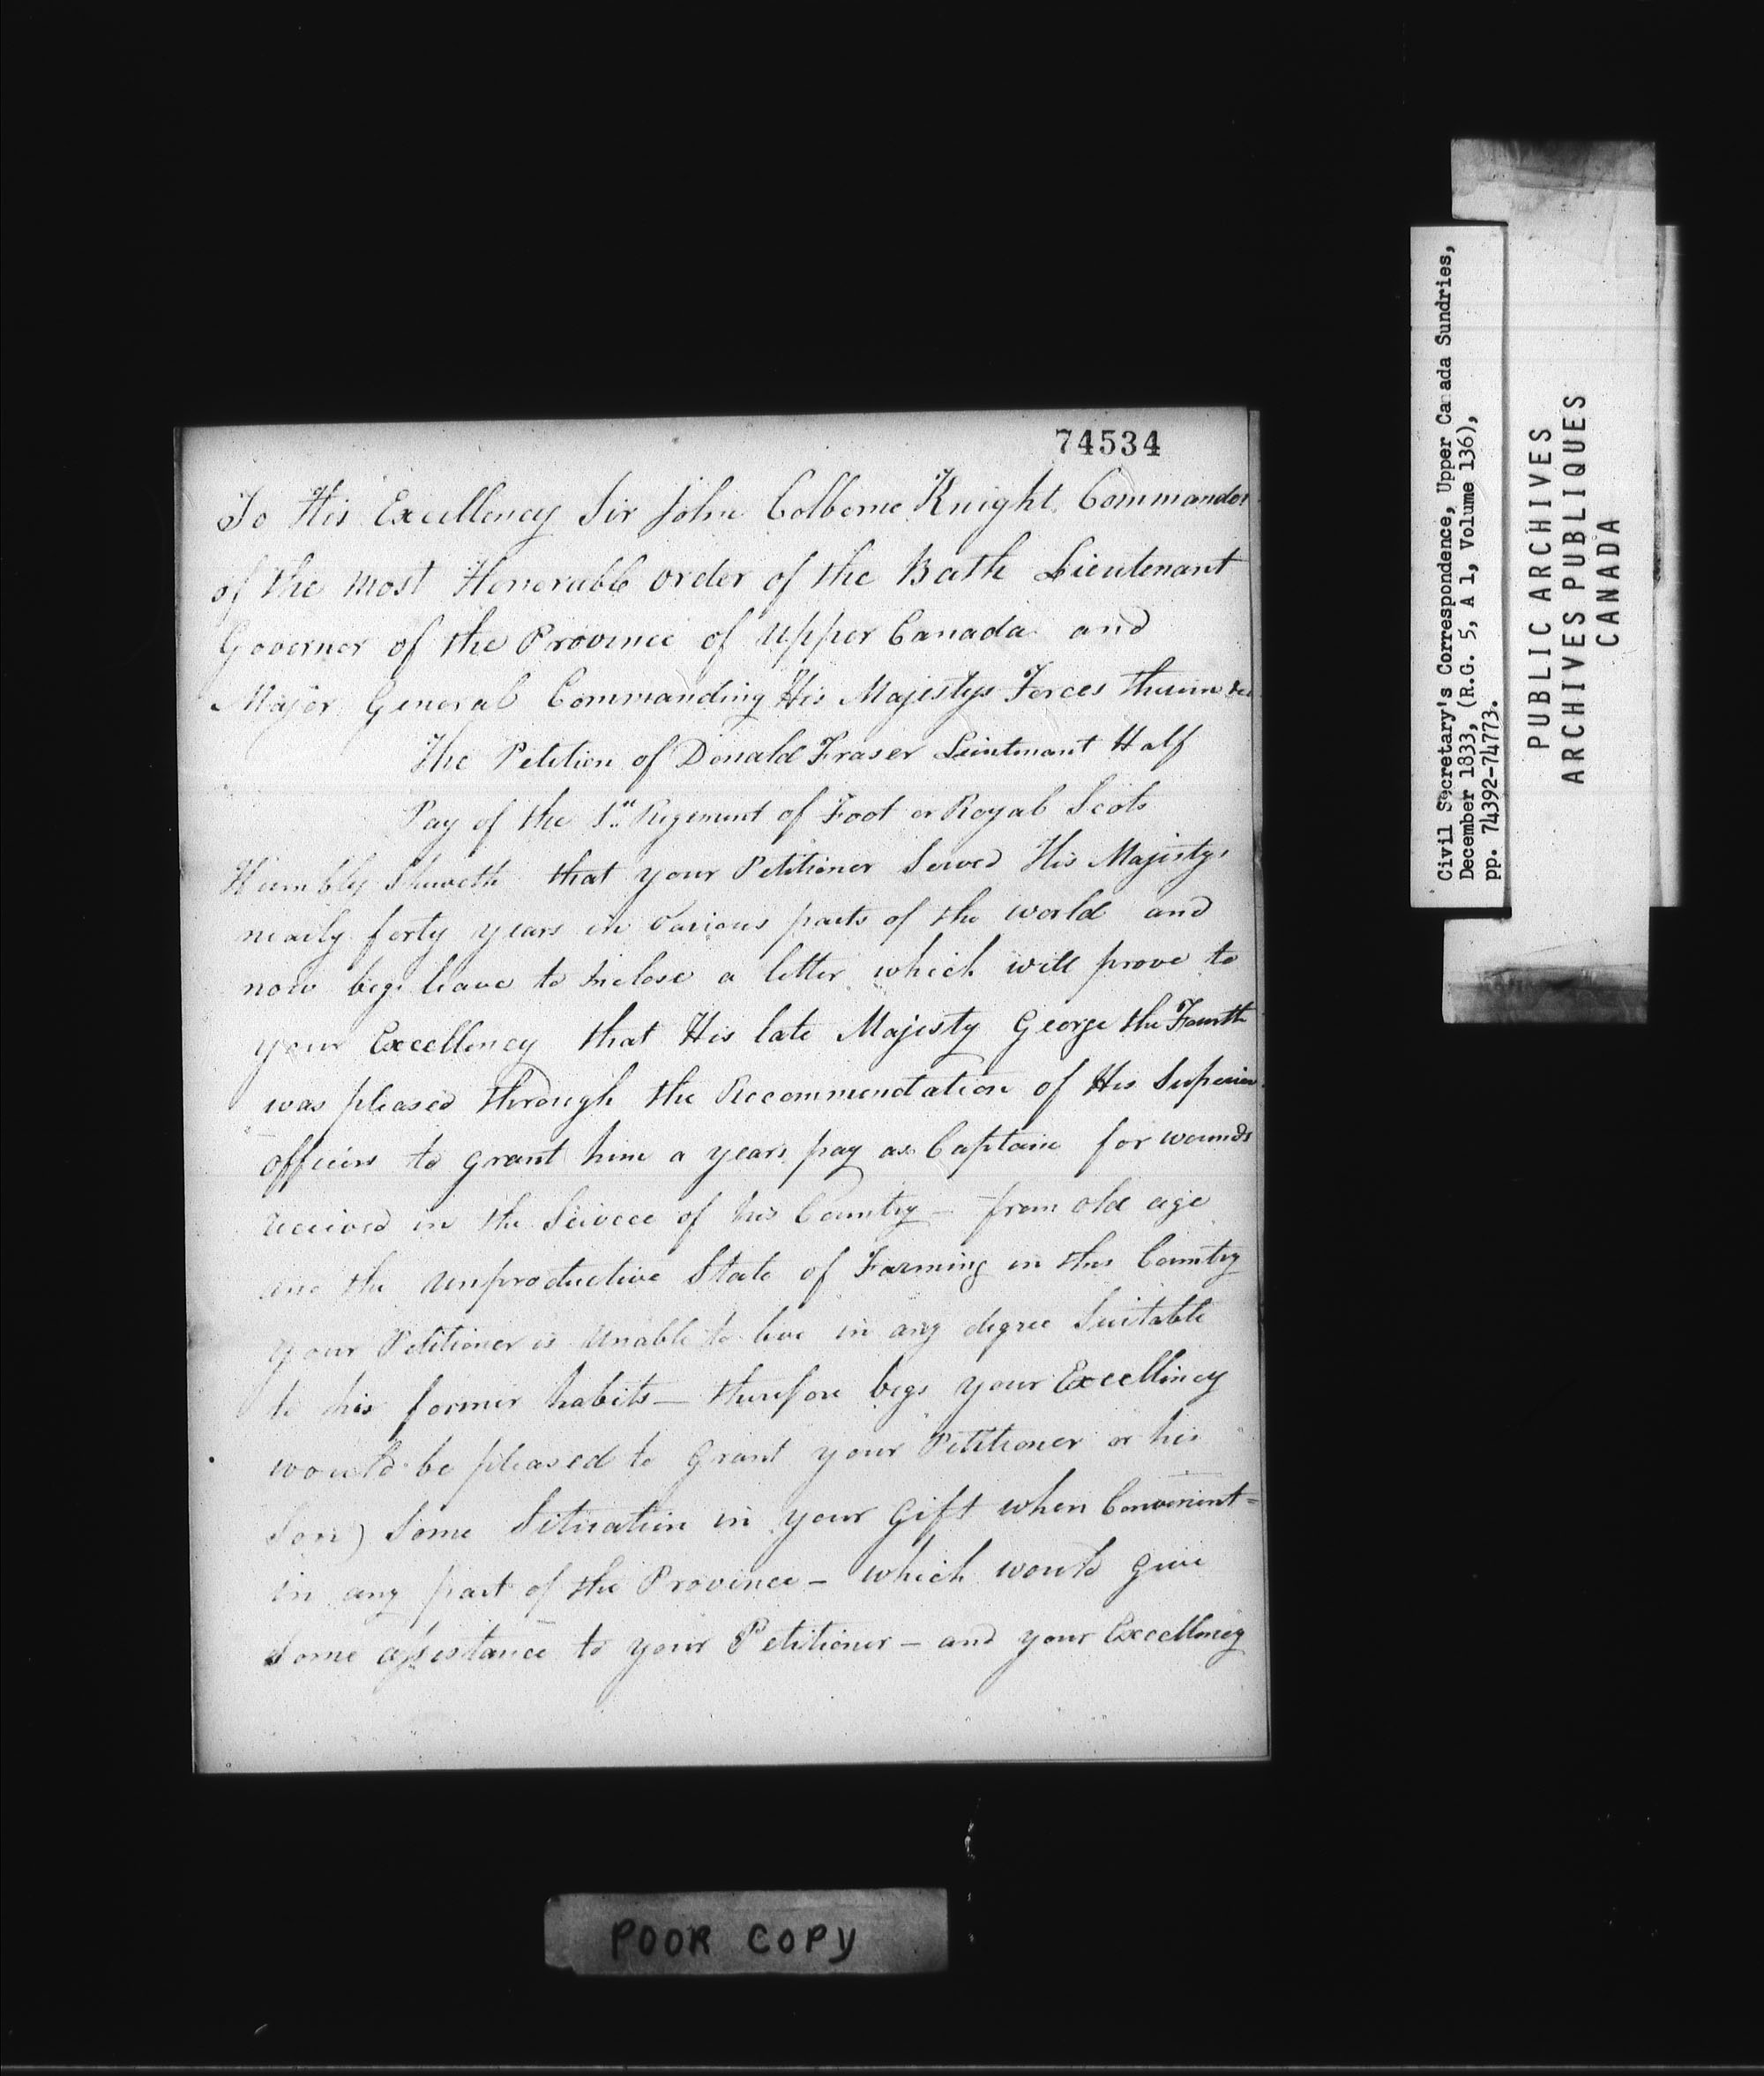 74534
To His Excellency Sir John Colborne Knight Commander
of the most Honorable order of the Bath Lieutenant
Governor of the Province of Upper Canada and
Major General Commanding His Majestys Forces therein &c
The Petition of Donald Fraser Lieutenant Half
Pay of the 1st Regement of Foot or Royal Scots
Humbly Sheweth that your Petitioner Served His Majestys
nearly forty years in various parts of the world and
now begs leave to Inclose a letter which will prove to
your Excellency that His late Majesty George the Fourth
was pleased through the Recommendation of His Superior
officers to grant him a years pay as Captain for wounds
received in the Service of his Country – from old age
and the unproductive State of Farming in this Country
your Petitioner is Unable to live in any degree Suitable
to his former habits – therefore begs your Excellency
would be pleased to grant your Petitioner or his
Son) Some Situation in your Gift when Convenient =
in any part of the Province – which would give
Some assistance to your Petitioner – and your Excellency
POOR COPY
Civil Secretary's Correspondence, Upper Canada Sundries,
December 1833, (R.G. 5, A 1, Volume 136),
pp. 74392-74773.
PUBLIC ARCHIVES
ARCHIVES PUBLIQUES
CANADA